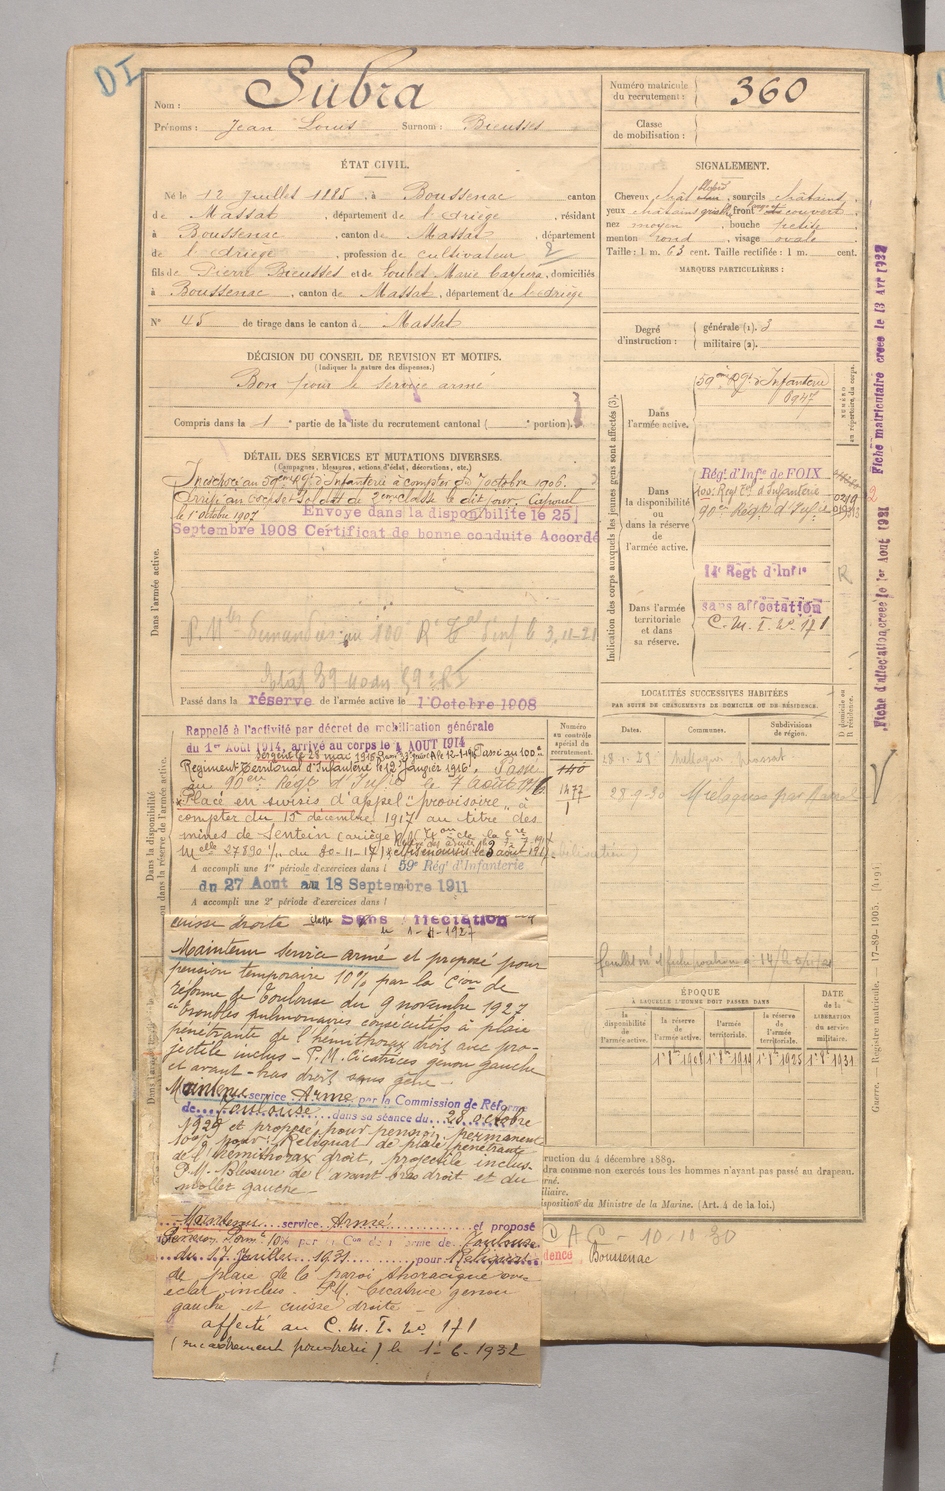 DI
Nom : Subra
Prénoms : Jean Louis Surnom : Bieusses
Numéro matricule du recrutement : 360
Classe de mobilisation :
ÉTAT CIVIL.
Né le 12 Juillet 1885, à Boussenac canton
de Massat, département de l'Ariège, résidant
à Boussenac, canton de Massat, département
de l'Ariège, profession de cultivateur
fils de Pierre Bieusses et de Loubet Marie, domiciliés
à Boussenac, canton de Massat, département de l'Ariège
N° 45 de tirage dans le canton de Massat
SIGNALEMENT.
Cheveux chât, sourcils châtains
yeux châtains, front couvert
nez moyen, bouche petite
menton rond, visage ovale
Taille : 1 m. 63 cent. Taille rectifiée : 1 m. cent.
MARQUES PARTICULIÈRES :
Degré d'instruction :
générale (1). 3
militaire (2).
DÉCISION DU CONSEIL DE REVISION ET MOTIFS.
(Indiquer la nature des dispenses.)
Bon pour le service armé
Compris dans la 1 e partie de la liste du recrutement cantonal ( e portion).
DÉTAIL DES SERVICES ET MUTATIONS DIVERSES.
(Campagnes, blessures, actions d'éclat, décorations, etc.)
Incorporé au 59eme Rgt d'Infanterie à compter du 7 octobre 1906.
Arrivé au corps et Soldat de 2eme classe le dit jour. Caporal
le 1er octobre 1907
Envoye dans la disponibilite le 25
Septembre 1908 Certificat de bonne conduite Accordé
Dans l'armée active.
Passé dans la réserve de l'armée active le 1 Octobre 1908
Indication des corps auxquels les jeunes gens sont affectés (3).
Dans l'armée active.
59me Rgt d'Infanterie
6947
NUMÉRO au répertoire du corps.
Dans la disponibilité ou dans la réserve de l'armée active.
Rég. d'Infie de FOIX
100e Régt Tal d'Infanterie
90me Régt d'Infie
Dans l'armée territoriale et dans sa réserve.
Regt d'Infie
sans affectation
C. M. I. No 171
R
LOCALITÉS SUCCESSIVES HABITÉES
PAR SUITE DE CHANGEMENTS DE DOMICILE OU DE RÉSIDENCE.
Dates. Communes. Subdivisions de région.
D domicile ou R résidence.
28-9-30
Rappelé à l'activité par décret de mobilisation générale
du 1er Aout 1914, arrivé au corps le 4 AOUT 1914
Sergent le 28 mai 1915 Passé au 100e
Régiment Territorial d'Infanterie le 12 Janvier 1916. Passé
au 90eme Régt d'Infie le 7 août 1916
Placé en sursis d'appel "provisoire" à
compter du 15 décembre 1917 au titre des
mines de Sentein (Ariège)
Melle 27890 1/11 du 30-11-17
A accompli une 1re période d'exercices dans l 59e Rég d'Infanterie
du 27 Aout au 18 Septembre 1911
A accompli une 2e période d'exercices dans l
Numéro au contrôle spécial du recrutement.
140
1477
1
Dans la disponibilité ou dans la réserve de l'armée active.
cuisse droite Sans affectation
le 1-4-1927
Maintenu service armé et proposé pour
pension temporaire 10% par la Cion de
réforme de Toulouse du 9 novembre 1927.
"Troubles pulmonaires consécutifs à plaie
pénétrante de l'hémithorax droit avec pro-
jectile inclus - P.M. Cicatrices genou gauche
et avant-bras droit sans gêne -
Maintenu service Armé par la Commission de Réforme
de Toulouse dans sa séance du 28 octobre
1929 et proposé pour pension permanente
10% pour : Reliquat de plaie pénétrante
de l'hémithorax droit, projectile inclus
P.M. Blessure de l'avant bras droit et du
mollet gauche -
Maintenu service Armé et proposé
Pension Perm. 10% par la Con de Réforme de Toulouse
du 17 Juillet 1931 pour Reliquat
de plaie de la paroi thoracique avec
éclat inclus. P.M. Cicatrice genou
gauche et cuisse droite -
affecté au C. M. I. No 171
(recrutement poudrerie) le 1-6-1932
ÉPOQUE
À LAQUELLE L'HOMME DOIT PASSER DANS
la disponibilité de l'armée active.
la réserve de l'armée active.
l'armée territoriale.
la réserve de l'armée territoriale.
DATE de la LIBÉRATION du service militaire.
1er 8bre 1908 1er 8bre 1919 1er 8bre 1925 1er 8bre 1931
ruction du 4 décembre 1889.
dra comme non exercés tous les hommes n'ayant pas passé au drapeau.
erné.
iliaire.
isposition du Ministre de la Marine. (Art. 4 de la loi.)
C A C - 10-10-30
dence Boussenac
Fiche d'affectation créée le 1er Aout 1921 Fiche matriculaire créée le 13 Avr 1922
Guerre. — Registre matricule. 17-89-1905. [419]